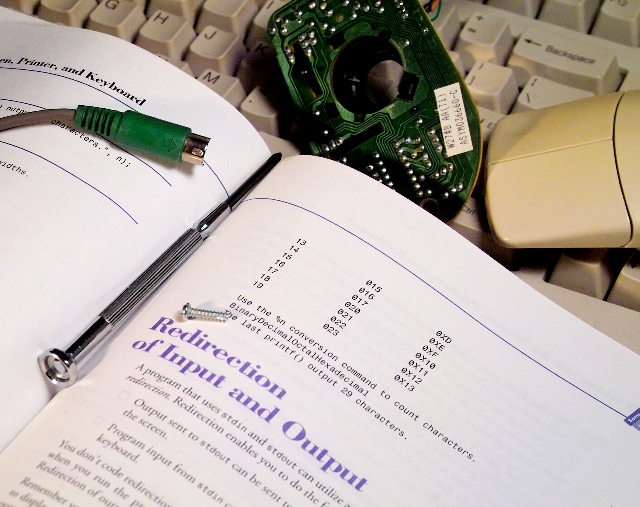 en, Printer, and Keyboard
characters.", n);
widths.
H
J
N
M
+
Backspace
W2788 AA(71)
Ctrl
13
14
15
16
17
18
19
015
016
017
020
021
022
023
0XD
0XE
0XF
0X10
0X11
0X12
0X13
Use the %n conversion command to count characters.
BinaryDecimalOctalHexadecimal
The last printf() output 29 characters.
Redirection
of Input and Output
A program that uses stdin and stdout can utilize
redirection. Redirection enables you to do the
Output sent to stdout can be sent to
the screen.
Program input from stdin
keyboard.
You don't code redirection
when you run the
Redirection of
Remember
to